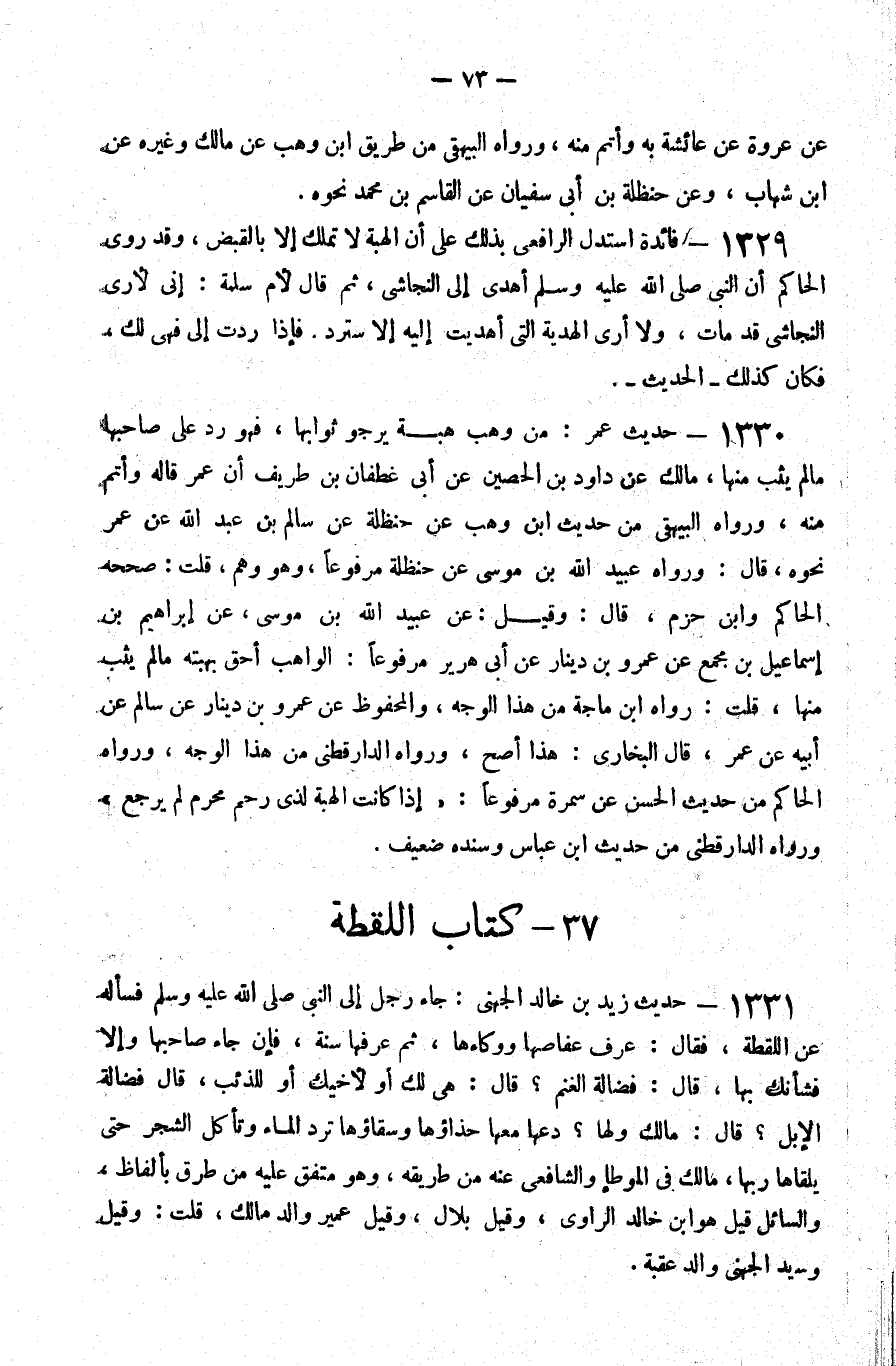 — ٧٣ —
عن عروة عن عائشة به وأتم منه ، ورواه البيهقى من طريق ابن وهب عن مالك وغيره عن
ابن شهاب ، وعن حنظلة بن أبى سفيان عن القاسم بن محمد نحوه .
١٣٢٩ — فائدة استدل الرافعى بذلك على أن الهبة لا تملك إلا بالقبض ، وقد روى
الحاكم أن النبى صلى الله عليه وسلم أهدى إلى النجاشى ، ثم قال لأم سلمة : إنى لأرى
النجاشى قد مات ، ولا أرى الهدية التى أهديت إليه إلا سترد . فإذا ردت إلى فهى لك ،
فكان كذلك ـ الحديث ـ .
١٣٣٠ — حديث عمر : من وهب هبة يرجو ثوابها ، فهو رد على صاحبها
مالم يثب منها ، مالك عن داود بن الحصين عن أبى غطفان بن طريف أن عمر قاله وأتم
منه ، ورواه البيهقى من حديث ابن وهب عن حنظلة عن سالم بن عبد الله عن عمر
نحوه ، قال : ورواه عبيد الله بن موسى عن حنظلة مرفوعاً ، وهو وهم ، قلت : صححه
الحاكم وابن حزم ، قال : وقيل : عن عبيد الله بن موسى ، عن إبراهيم بن
إسماعيل بن مجمع عن عمرو بن دينار عن أبى هرير مرفوعاً : الواهب أحق بهبته مالم يثب
منها ، قلت : رواه ابن ماجة من هذا الوجه ، والمحفوظ عن عمرو بن دينار عن سالم عن
أبيه عن عمر ، قال البخارى : هذا أصح ، ورواه الدارقطنى من هذا الوجه ، ورواه
الحاكم من حديث الحسن عن سمرة مرفوعاً : « إذا كانت الهبة لذى رحم محرم لم يرجع »
ورواه الدارقطنى من حديث ابن عباس وسنده ضعيف .
٣٧ – كتاب اللقطة
١٣٣١ — حديث زيد بن خالد الجهنى : جاء رجل إلى النبى صلى الله عليه وسلم فسأله
عن اللقطة ، فقال : عرف عفاصها ووكاءها ، ثم عرفها سنة ، فإن جاء صاحبها وإلا
فشأنك بها ، قال : فضالة الغنم ؟ قال : هى لك أو لأخيك أو للذئب ، قال فضالة
الإبل ؟ قال : مالك ولها ؟ دعها معها حذاؤها وسقاؤها ترد الماء وتأكل الشجر حتى
يلقاها ربها ، مالك فى الموطإ والشافعى عنه من طريقه ، وهو متفق عليه من طرق بألفاظ ،
والسائل قيل هو ابن خالد الراوى ، وقيل بلال ، وقيل عمير والد مالك ، قلت : وقيل
وسيد الجهنى والد عقبة .